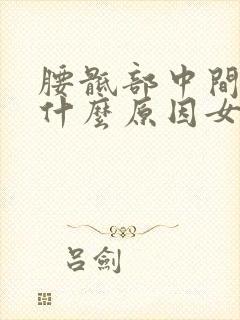 腰骶部中間
什麼原因女
呂劍